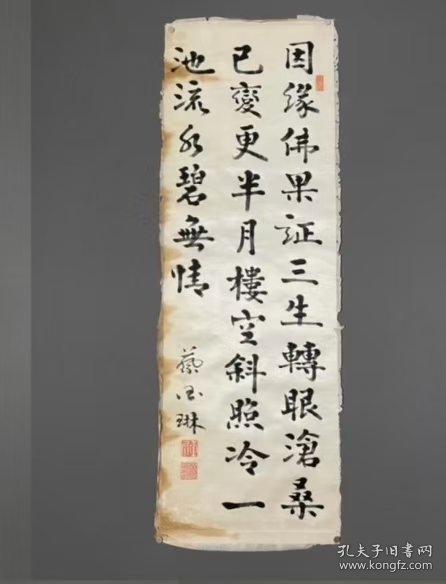 因缘佛果証三生轉眼滄桑
已變更半月樓空斜照冷一
池流水碧無情
蔡国琳
孔夫子旧书网
www.kongfz.com